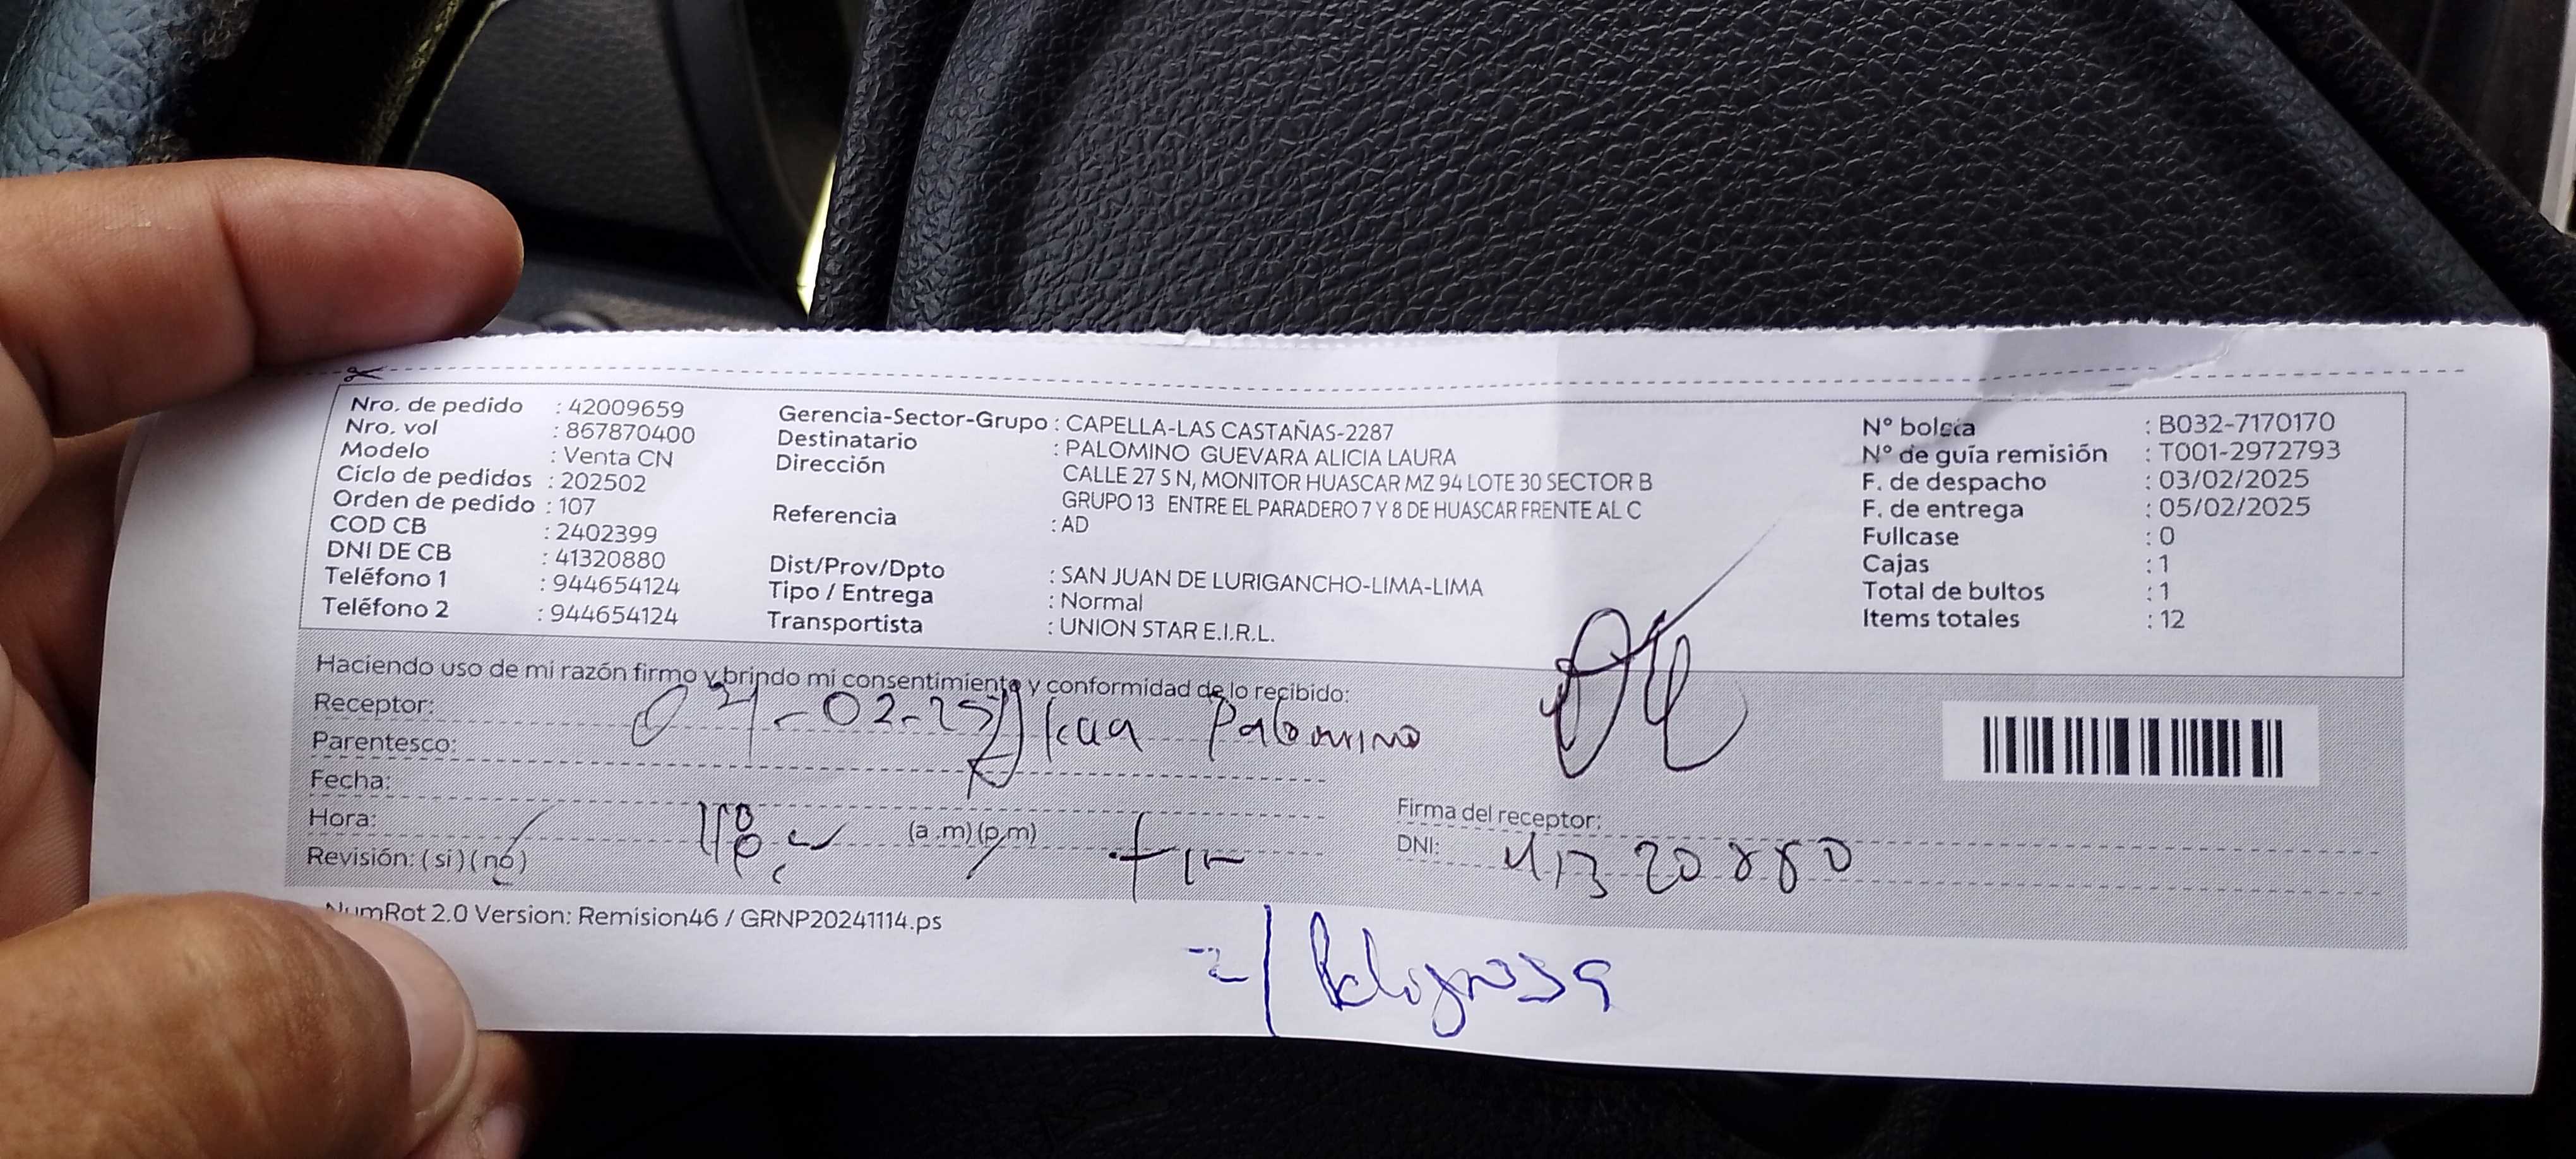 Nro. de pedido : 42009659
Nro. vol : 867870400
Modelo : Venta CN
Ciclo de pedidos : 202502
Orden de pedido : 107
COD CB : 2402399
DNI DE CB : 41320880
Teléfono 1 : 944654124
Teléfono 2 : 944654124
Gerencia-Sector-Grupo : CAPELLA-LAS CASTAÑAS-2287
Destinatario : PALOMINO GUEVARA ALICIA LAURA
Dirección CALLE 27 S N, MONITOR HUASCAR MZ 94 LOTE 30 SECTOR B
GRUPO 13 ENTRE EL PARADERO 7 Y 8 DE HUASCAR FRENTE AL C
Referencia : AD
Dist/Prov/Dpto : SAN JUAN DE LURIGANCHO-LIMA-LIMA
Tipo / Entrega : Normal
Transportista : UNION STAR E.I.R.L.
N° boleta : B032-7170170
N° de guía remisión : T001-2972793
F. de despacho : 03/02/2025
F. de entrega : 05/02/2025
Fullcase : 0
Cajas : 1
Total de bultos : 1
Items totales : 12
Haciendo uso de mi razón firmo y brindo mi consentimiento y conformidad de lo recibido:
Receptor: 04-02-25 Palomino
Parentesco:
Fecha:
Hora: (a .m) (p.m)
Revisión: ( si ) ( no )
Firma del receptor:
DNI: 41320880
NumRot 2.0 Version: Remision46 / GRNP20241114.ps